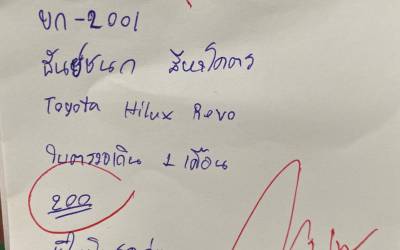 ยก-2001
ธันย์ชนก สีหะโคตร
Toyota Hilux Revo
ใบตรวจเดิน 1 เดือน
200